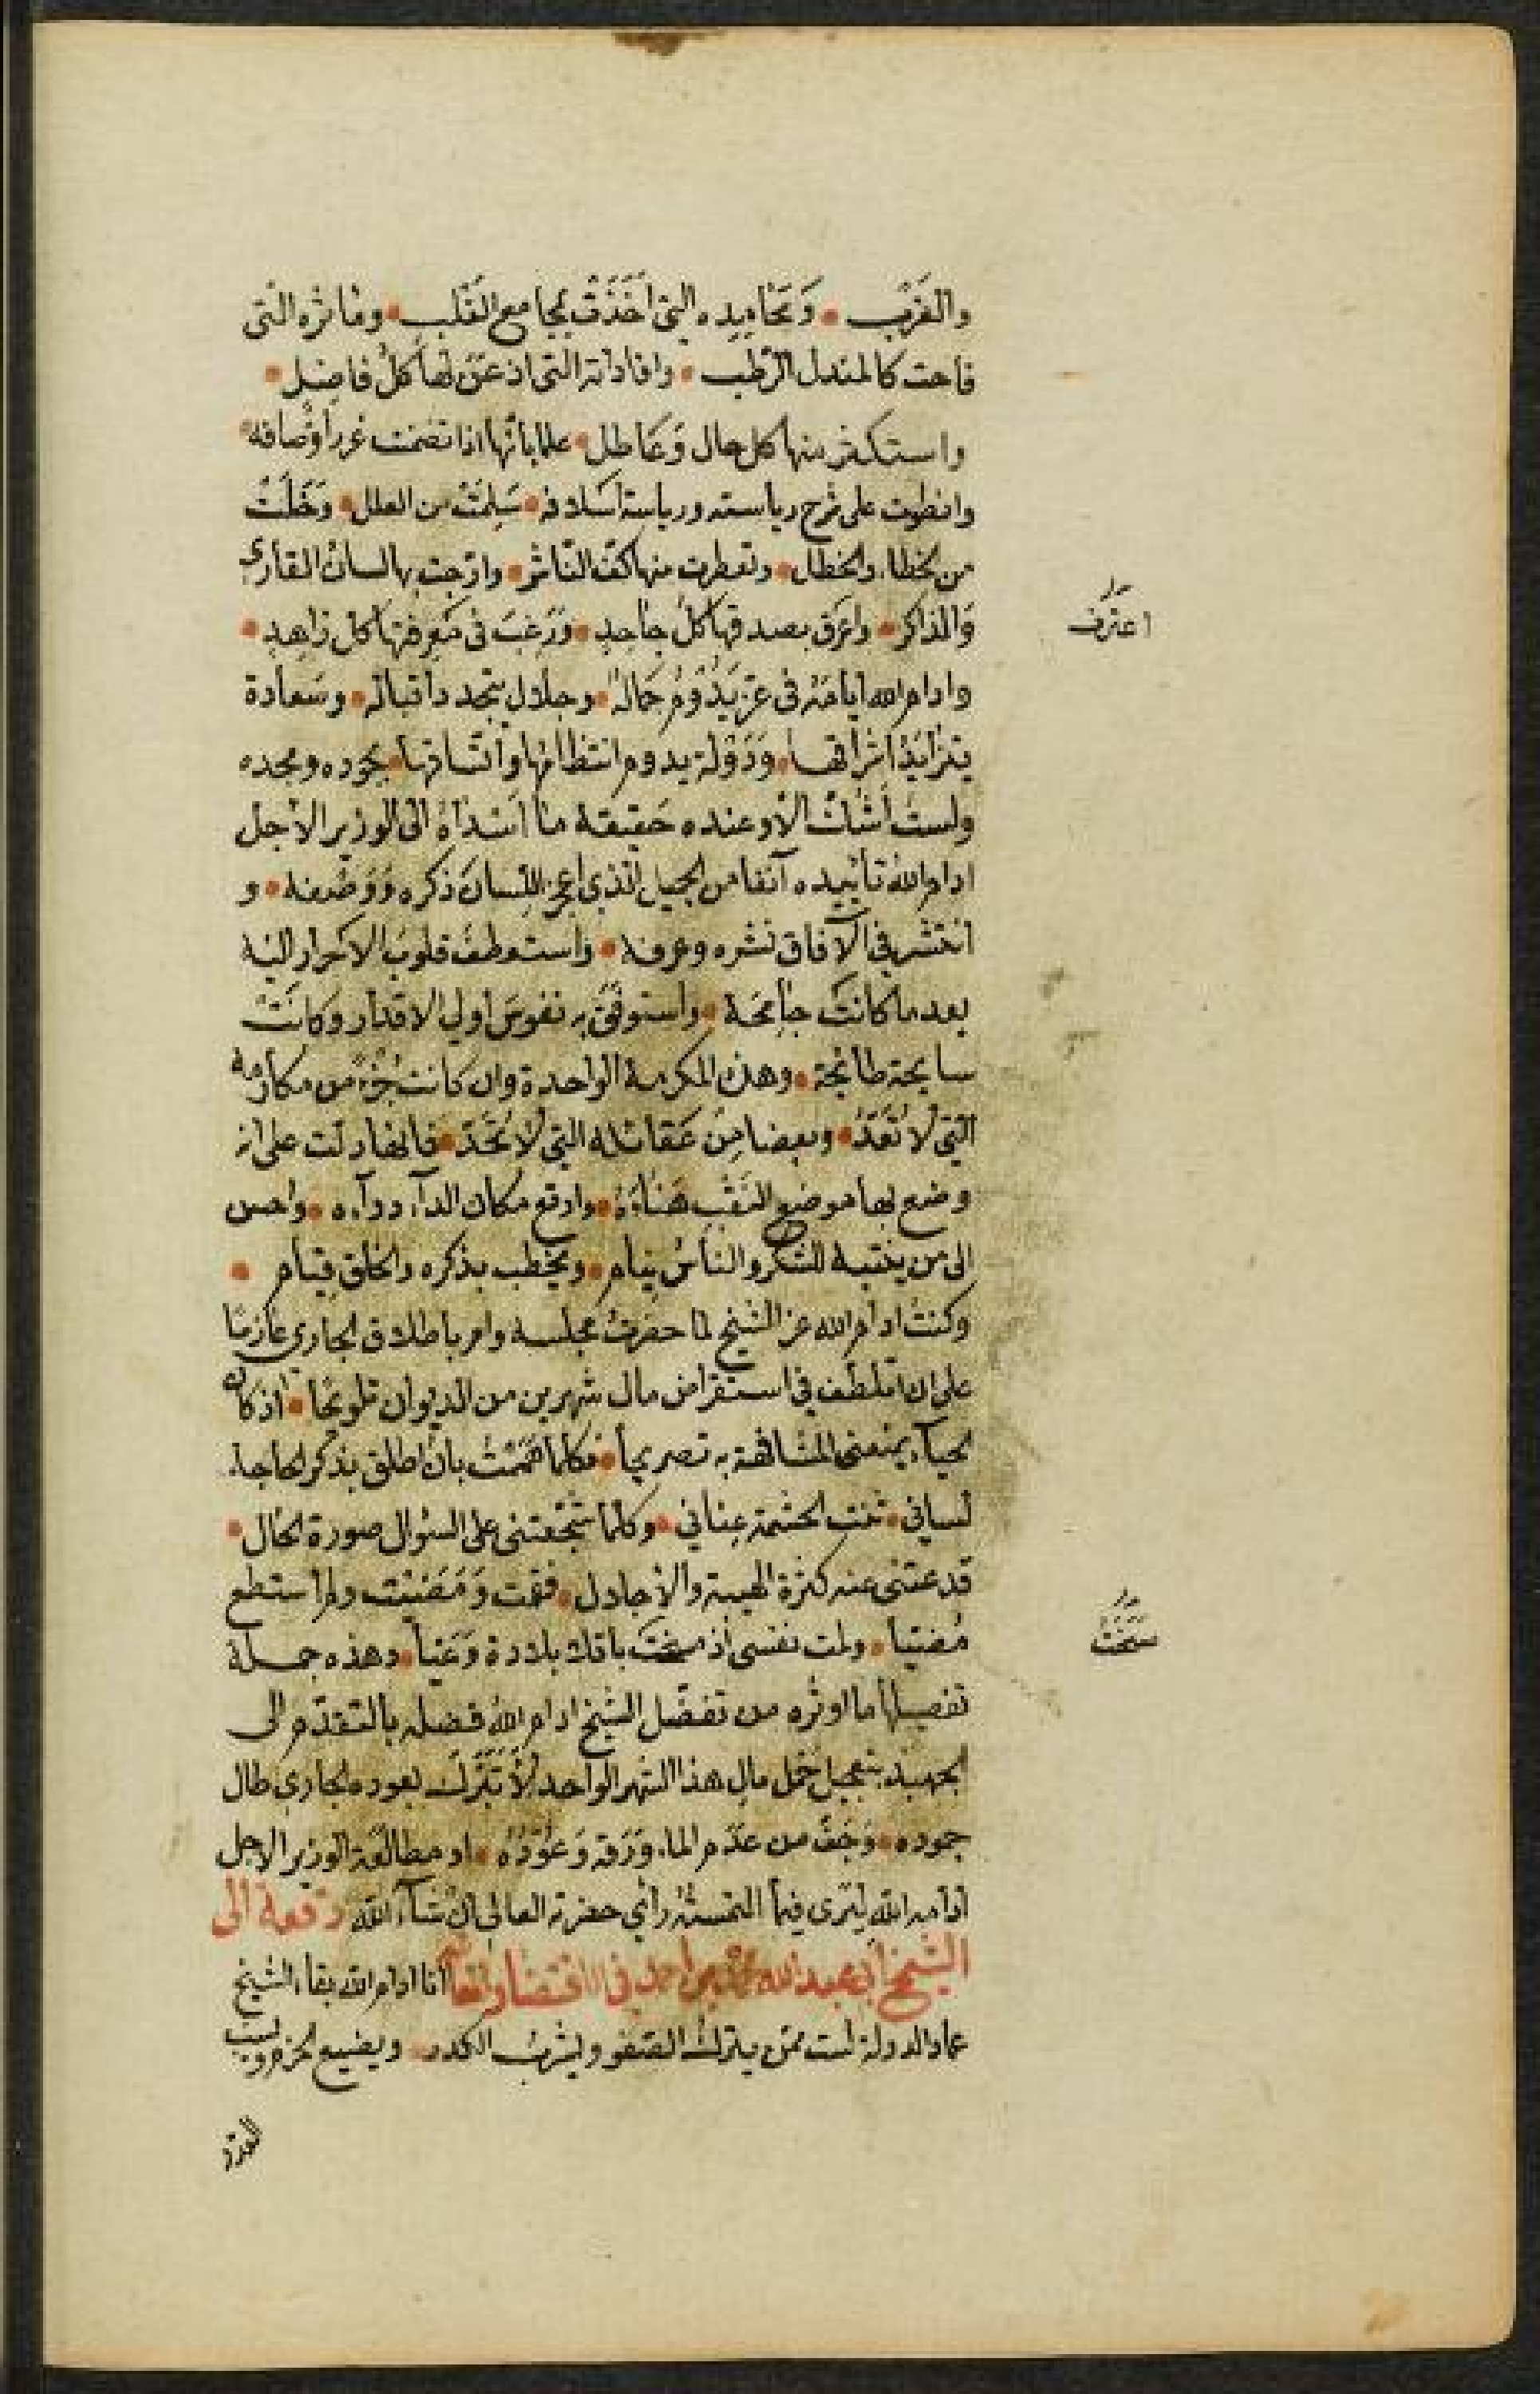 والغرب • وَمحَامِدِه التى اَخَذَتْ بمجامع القَلب • ومَاثره التى
فاحت كالمندل الرَّطب • وافاداته التى اذعَنَ لها كلُّ فاضل •
واستكفر منها كل حال وَعَاطل • علما بانّها اذا تضمنت غرر اوصافه •
وانطوت على شرح رياسته ورياسة اسلافه • سَلِمَتْ من العلل • وَخَلَتْ
من الخطاء والخطل • وتعطرت منها كفّ النّاشر • وارّجت بها لسانُ القارى
وَالذاكر • واعرق بصدقها كلّ جاحِدٍ • وَرَغِبَ فى مَعرفتها كل زاهِدٍ •
وادام الله ايامَهُ فى عزّ يَدُوُمُ جَمَالهُ • وجلال يتجدد اقباله • وسَعادة
يتزايَدُ اشراقها • وَدَوْلة يدوم انتظامُها واتّساقها بجوده ومجده
ولست اَشُكُّ الاّ وعنده حَقيقة مَا اَسْدَاهُ الى الوزير الاجل
ادام الله تأييده آنفا من الجميل الذي اعجز اللّسانَ ذكره وَوَصْفه • و
انتشر في الآفاق نشره وعرفه • واستعطفَ قلوبَ الاحرار اليه
بعد ما كانت جامحَة • واستوقَفَ به نفوسَ اولي الاقدار وكانَتْ
سايحة طائحة • وهذه المكرمة الواحدة وان كانت جُزءً من مكارمه
التي لا تُعَدُّ • وبعضا مِن عَقائله التي لا تُحَدّ • فانها دلت على انه
وضع بها موضع النَقْب هَنَاءَهُ • واوقع مكان الدآء دوآءه • واحسن
الى من ينتبه للشكر والناسُ نِيام • ويخطب بذكره والخلق قيام •
وكنتُ ادام الله عز الشيخ لما حضرتُ مجلسه وامر باطلاق الجاري عَازمًا
على ان اتلطّف في استقراض مال شهرين من الديوان تلويحًا • اذ كان
الحيآء يمنعنى المشافهة به تصريحاً • فكلّما هَمَمْتُ بان اطلق بذكر الحاجة
لساني • ثنت الحشمة عِناني • وكلّما شجّعتنى على السّؤال صورة الحال •
قدعتنى عنه كثرة الهيبة والاجلال • فقمت وَمَضَيْت ولم استطع
مُضيّا • ولمت نفسى اذ سخت باقل بلادة وَعَيّا • وهذه جملة
تفصيلها ما اوثره من تفضّل الشيخ ادام الله فضله بالتقدّم الى
الجهبذ بتعجيل حَمل مال هذا الشهر الواحد لاَتَبَرَّك بعوده الجارى طال
جموده • وَجَفّ من عَدَم الماء وَرقه وَعُوْدُهُ • او مطالعة الوزير الاجل
ادامه الله ليَرى فيما التمستُهُ رأي حضرته العالى ان شآء الله رقعة الى
الشيخ ابى عبدالله محمد بن احمد فى الاقتضا وايضا انا ادام الله بقاء الشيخ
عماد الدولة لست ممّن يترك الصّفو ويشربُ الكدر • ويضيع الحزم ويسب
القدر
اعترف
سَخُفَتْ